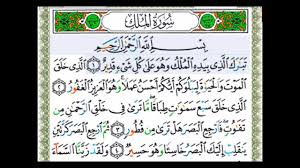 سُورَةُ المُلْكِ
بِسْمِ ٱللَّهِ ٱلرَّحْمَٰنِ ٱلرَّحِيمِ
تَبَٰرَكَ ٱلَّذِى بِيَدِهِ ٱلْمُلْكُ وَهُوَ عَلَىٰ كُلِّ شَىْءٍ قَدِيرٌ ١ ٱلَّذِى خَلَقَ
ٱلْمَوْتَ وَٱلْحَيَوٰةَ لِيَبْلُوَكُمْ أَيُّكُمْ أَحْسَنُ عَمَلًا وَهُوَ ٱلْعَزِيزُ ٱلْغَفُورُ ٢
ٱلَّذِى خَلَقَ سَبْعَ سَمَٰوَٰتٍ طِبَاقًا مَّا تَرَىٰ فِى خَلْقِ ٱلرَّحْمَٰنِ مِن
تَفَٰوُتٍ فَٱرْجِعِ ٱلْبَصَرَ هَلْ تَرَىٰ مِن فُطُورٍ ٣ ثُمَّ ٱرْجِعِ ٱلْبَصَرَ كَرَّتَيْنِ
يَنقَلِبْ إِلَيْكَ ٱلْبَصَرُ خَاسِئًا وَهُوَ حَسِيرٌ ٤ وَلَقَدْ زَيَّنَّا ٱلسَّمَآءَ